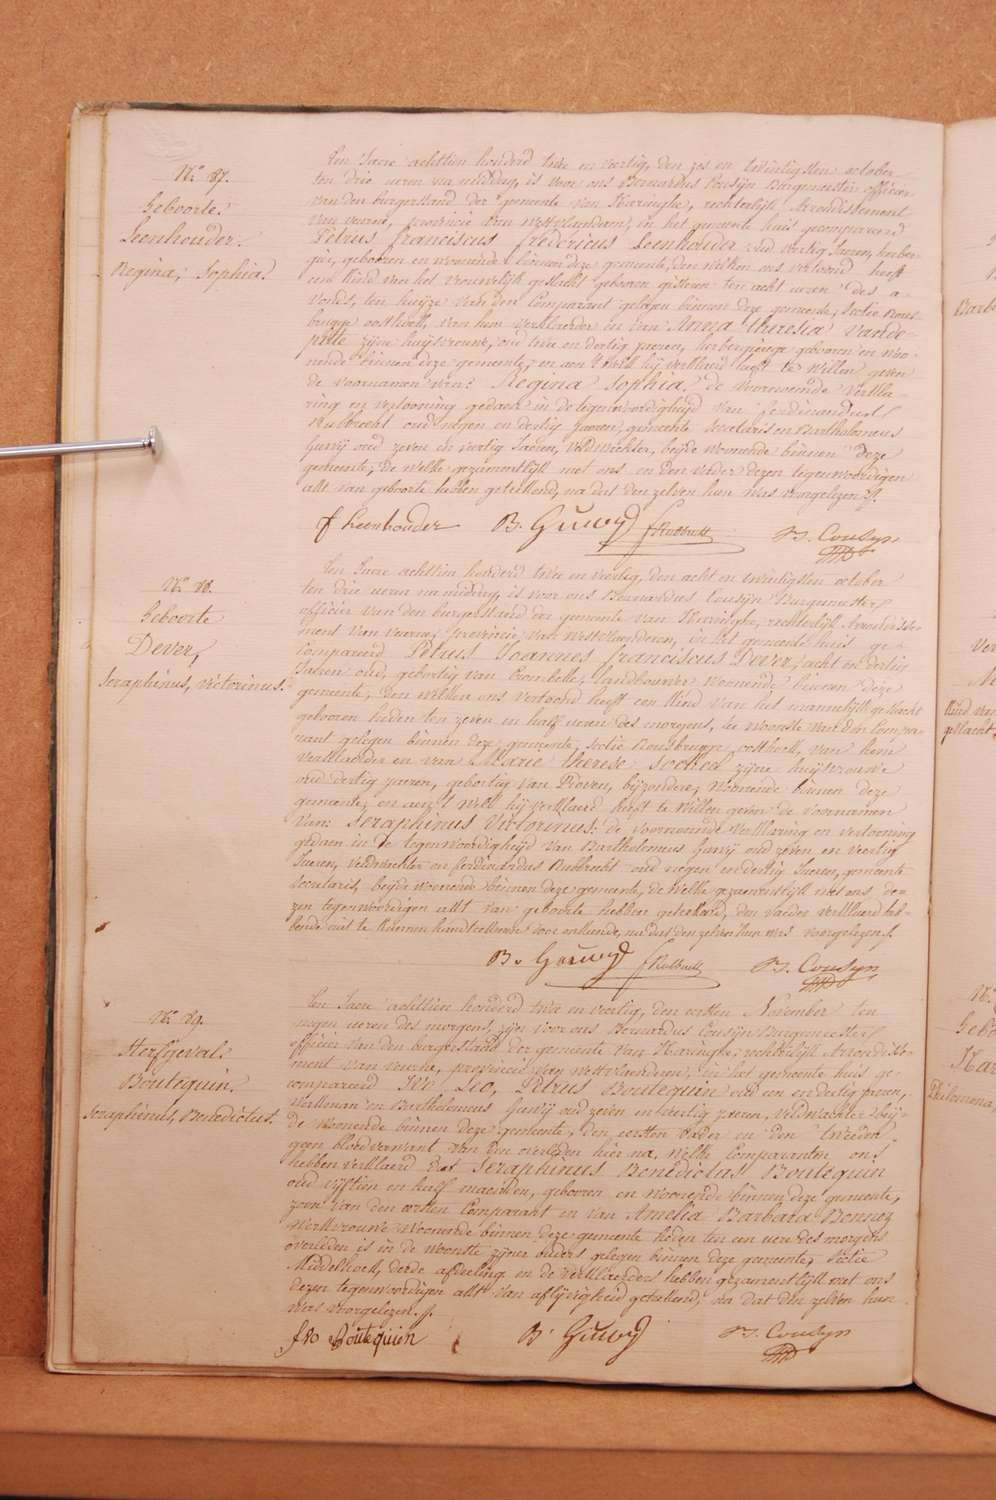 N.º 87.
Geboorte.
Leenhouder.
Regina, Sophia.
Ten Jaere achttien honderd twee en veertig, den zes en twintigsten october
ten drie ueren na middag, is voor ons Bernardus Cousÿn Burgemeester officier
van den burgerstand der gemeente van Haeringhe, rechterlijk Arrondissement
van veurne, provincie van westvlaenderen, in het gemeente huis gecompareerd
Petrus franciscus fredericus Leenhouder oud veertig Jaeren, herber-
gier, gebooren en woonende binnen deze gemeente, den welken ons vertoond heeft
een kind van het vrouwelijk geslacht gebooren gisteren ten acht ueren des a-
vonds, ten huijze van den Comparant gelegen binnen deze gemeente, sectie Rous-
brugge oosthoek, van hem verklaerder en van Anna theresia Vande-
pitte zijne huijsvrouw, oud twee en dertig jaeren, herbergierge gebooren en woo-
nende binnen deze gemeente, en aen 't welk hij verklaerd heeft te willen geven
de voornamen van: Regina Sophia. de voornoemde verkla-
ring en vertooning gedaen in de tegenwoordigheijd van ferdinandus
Rubbrecht oud negen en dertig Jaeren, gemeente secretaris en Bartholomeus
Gurvij oud zeven en veertig Jaeren, veldwachter, beijde woonende binnen deze
gemeente, de welke gezamentlijk met ons en den vader dezen tegenwoordigen
akt van geboorte hebben geteekend, na dat den zelven hun was voorgelezen.
f Leenhouder B. Guwÿ f Rubbrecht B. Cousyn
N.º 88.
Geboorte
Dever,
Seraphinus, victorinus.
Ten Jaere achttien honderd twee en veertig, den acht en twintigsten october
ten drie ueren na middag, is voor ons Bernardus Cousijn Burgemeester
officier van den burgerstand der gemeente van Haeringhe, rechterlijk Arrondisse-
ment van veurne, provincie van Westvlaenderen, in het gemeente huis ge-
compareerd Petrus Joannes franciscus Dever, acht en dertig
Jaeren oud, geboortig van Crombeke, landbouwer woonende binnen deze
gemeente, den welken ons vertoond heeft een kind van het mannelijk geslacht
gebooren heden ten zeven en half ueren des morgens, ter woonste van den Compa-
rant gelegen binnen deze gemeente, sectie Rousbrugge oosthoek, van hem
verklaerder en van Marie therese zijne huijsvrouwe
oud dertig jaeren, geboortig van Proven, bijzondere, woonende binnen deze
gemeente, en aen 't welk hij verklaerd heeft te willen geven de voornamen
van: Seraphinus Victorinus: de voornoemde verklaring en vertooning
gedaen in de tegenwoordigheijd van Bartholomeus Gurvij oud zeven en veertig
Jaeren, veldwachter en ferdinandus Rubbrecht oud negen en dertig Jaeren, gemeente
secretaris, beijde woonende binnen deze gemeente, de welke gezamentlijk met ons de-
zen tegenwoordigen akt van geboorte hebben geteekend, den vader verklaerd heb-
bende niet te kunnen handteekenen voor onkunde, na dat den zelven hun was voorgelezen.
B. Guwÿ f Rubbrecht B. Cousyn
N.º 89.
Sterfgeval.
Boutequin.
Seraphinus, Benedictus.
Ten Jaere achttien honderd twee en veertig, den eersten November ten
negen ueren des morgens, zijn voor ons Bernardus Cousijn Burgemeester
officier van den burgerstand der gemeente van Haringhe, rechterlijk Arrondisse-
ment van veurne, provincie van Westvlaenderen, in het gemeente huis ge-
compareerd Ivo, Leo, Petrus Boutequin oud een en dertig jaeren,
werkman en Bartholomeus Gurvij oud zeven en veertig jaeren, veldwachter beij-
de woonende binnen deze gemeente, den eersten vader en den tweeden
geen bloedverwant van den overleden hier na, welke Comparanten ons
hebben verklaerd dat Seraphinus Benedictus Boutequin
oud vijftien en half maenden, gebooren en woonende binnen deze gemeente,
zoon van den eersten Comparant en van Amelia Barbara Bonnez
werkvrouwe woonende binnen deze gemeente heden ten een uere des morgens
overleden is in de woonste zijner ouders gelegen binnen deze gemeente, sectie
Middelhoek, derde afdeeling en de verklaerders hebben gezamentlijk met ons
dezen tegenwoordigen akt van aflijvigheid geteekend, na dat den zelven hun
was voorgelezen.
Ivo Boutequin B. Guwÿ B. Cousyn
Barb
Ver
Kind van
geslacht
N.º
Gebo
Har
Philomena,